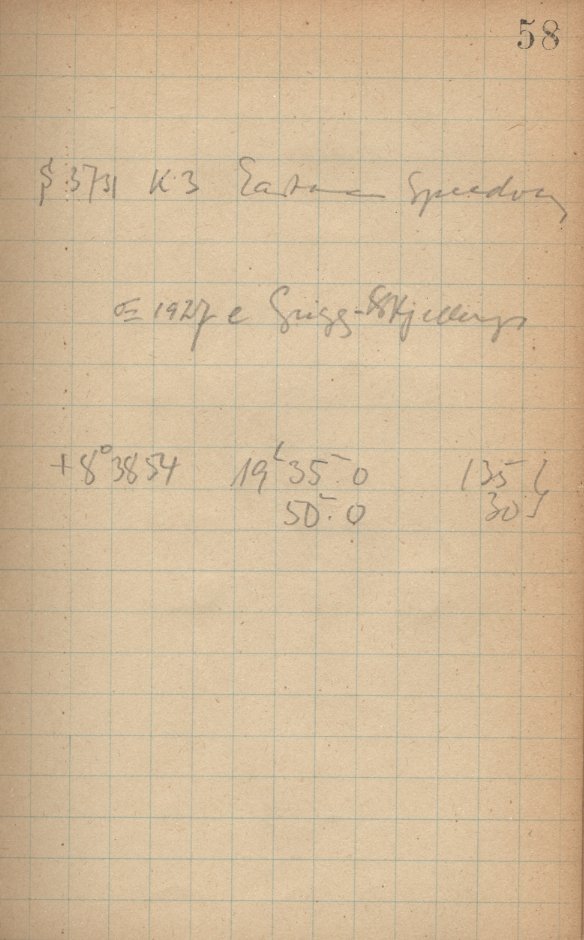 58
§ 3731 K3 Eastman Speedway
1927 e Grigg-Skjellerup
+8°3854 19ʰ35ᵐ.0 135
50.0 30